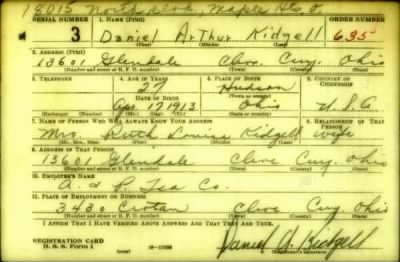 18015 North Blvd, Maple Hts O.
SERIAL NUMBER 1. NAME (Print) ORDER NUMBER
3 Daniel Arthur Kidgell 635
(First) (Middle) (Last)
2. ADDRESS (Print)
13601 Glendale Cleve Cuy. Ohio
(Number and street or R. F. D. number) (Town) (County) (State)
3. TELEPHONE 4. AGE IN YEARS 5. PLACE OF BIRTH 6. COUNTRY OF CITIZENSHIP
27 Hudson
DATE OF BIRTH (Town or county)
Apr 17 1913 Ohio U.S.A
7. NAME OF PERSON WHO WILL ALWAYS KNOW YOUR ADDRESS 8. RELATIONSHIP OF THAT PERSON
Mrs. Ruth Louise Kidgell wife
(Mr., Mrs., Miss) (First) (Middle) (Last)
9. ADDRESS OF THAT PERSON
13601 Glendale Cleve Cuy. Ohio
(Number and street or R. F. D. number) (Town) (County) (State)
10. EMPLOYER'S NAME
A. & P. Tea Co.
11. PLACE OF EMPLOYMENT OR BUSINESS
3430 Croton Cleve Cuy. Ohio
(Number and street or R. F. D. number) (Town) (County) (State)
I AFFIRM THAT I HAVE VERIFIED ABOVE ANSWERS AND THAT THEY ARE TRUE.
REGISTRATION CARD
D. S. S. Form 1 Daniel A. Kidgell
(Registrant's signature)